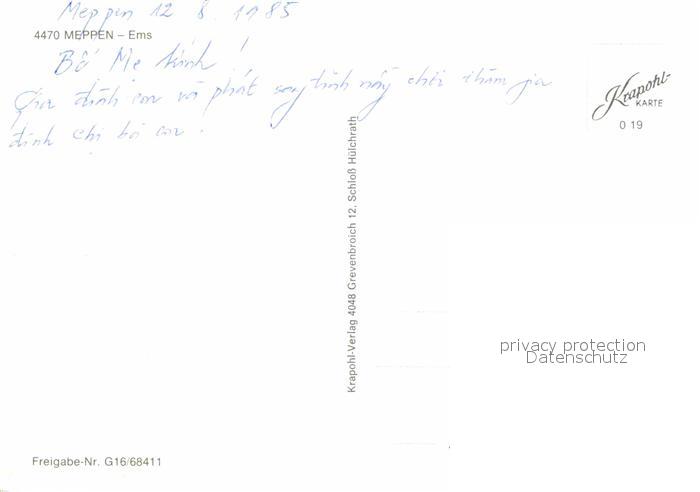 Meppen 12 8. 1985
4470 MEPPEN – Ems
Bố Mẹ kính !
Gia đình con và phát sang tỉnh này chơi thăm gia
đình chị bố con .
Krapohl-
KARTE
0 19
Krapohl-Verlag 4048 Grevenbroich 12, Schloß Hülchrath
privacy protection
Datenschutz
Freigabe-Nr. G16/68411